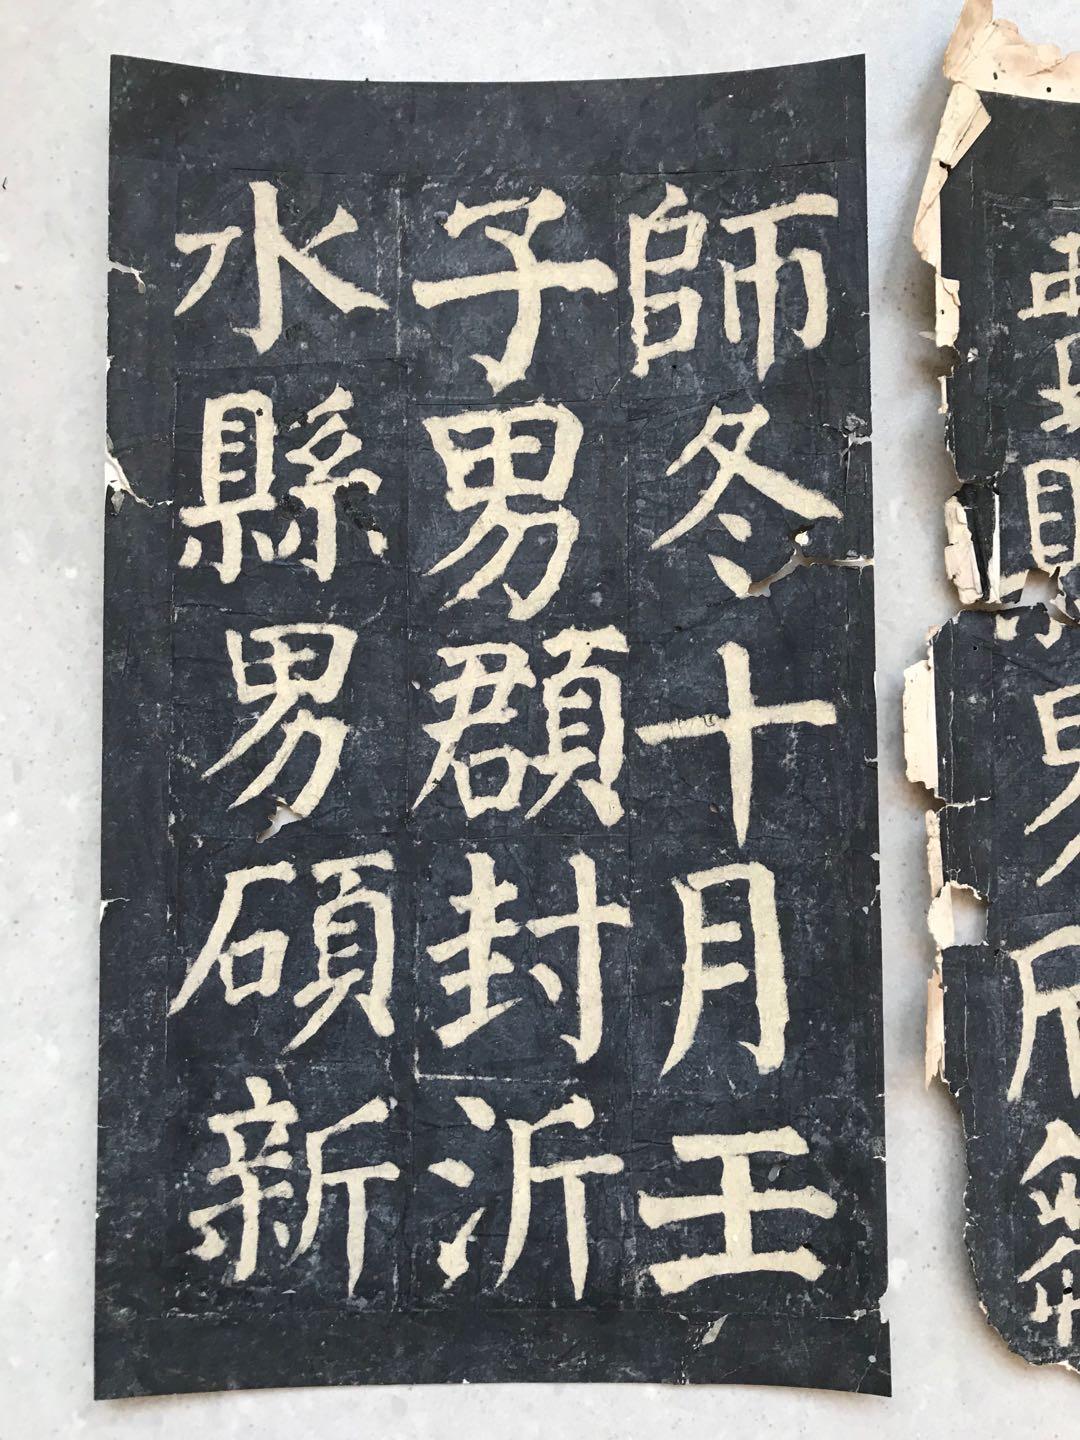 師冬十月壬
子男頵封沂
水縣男碩新